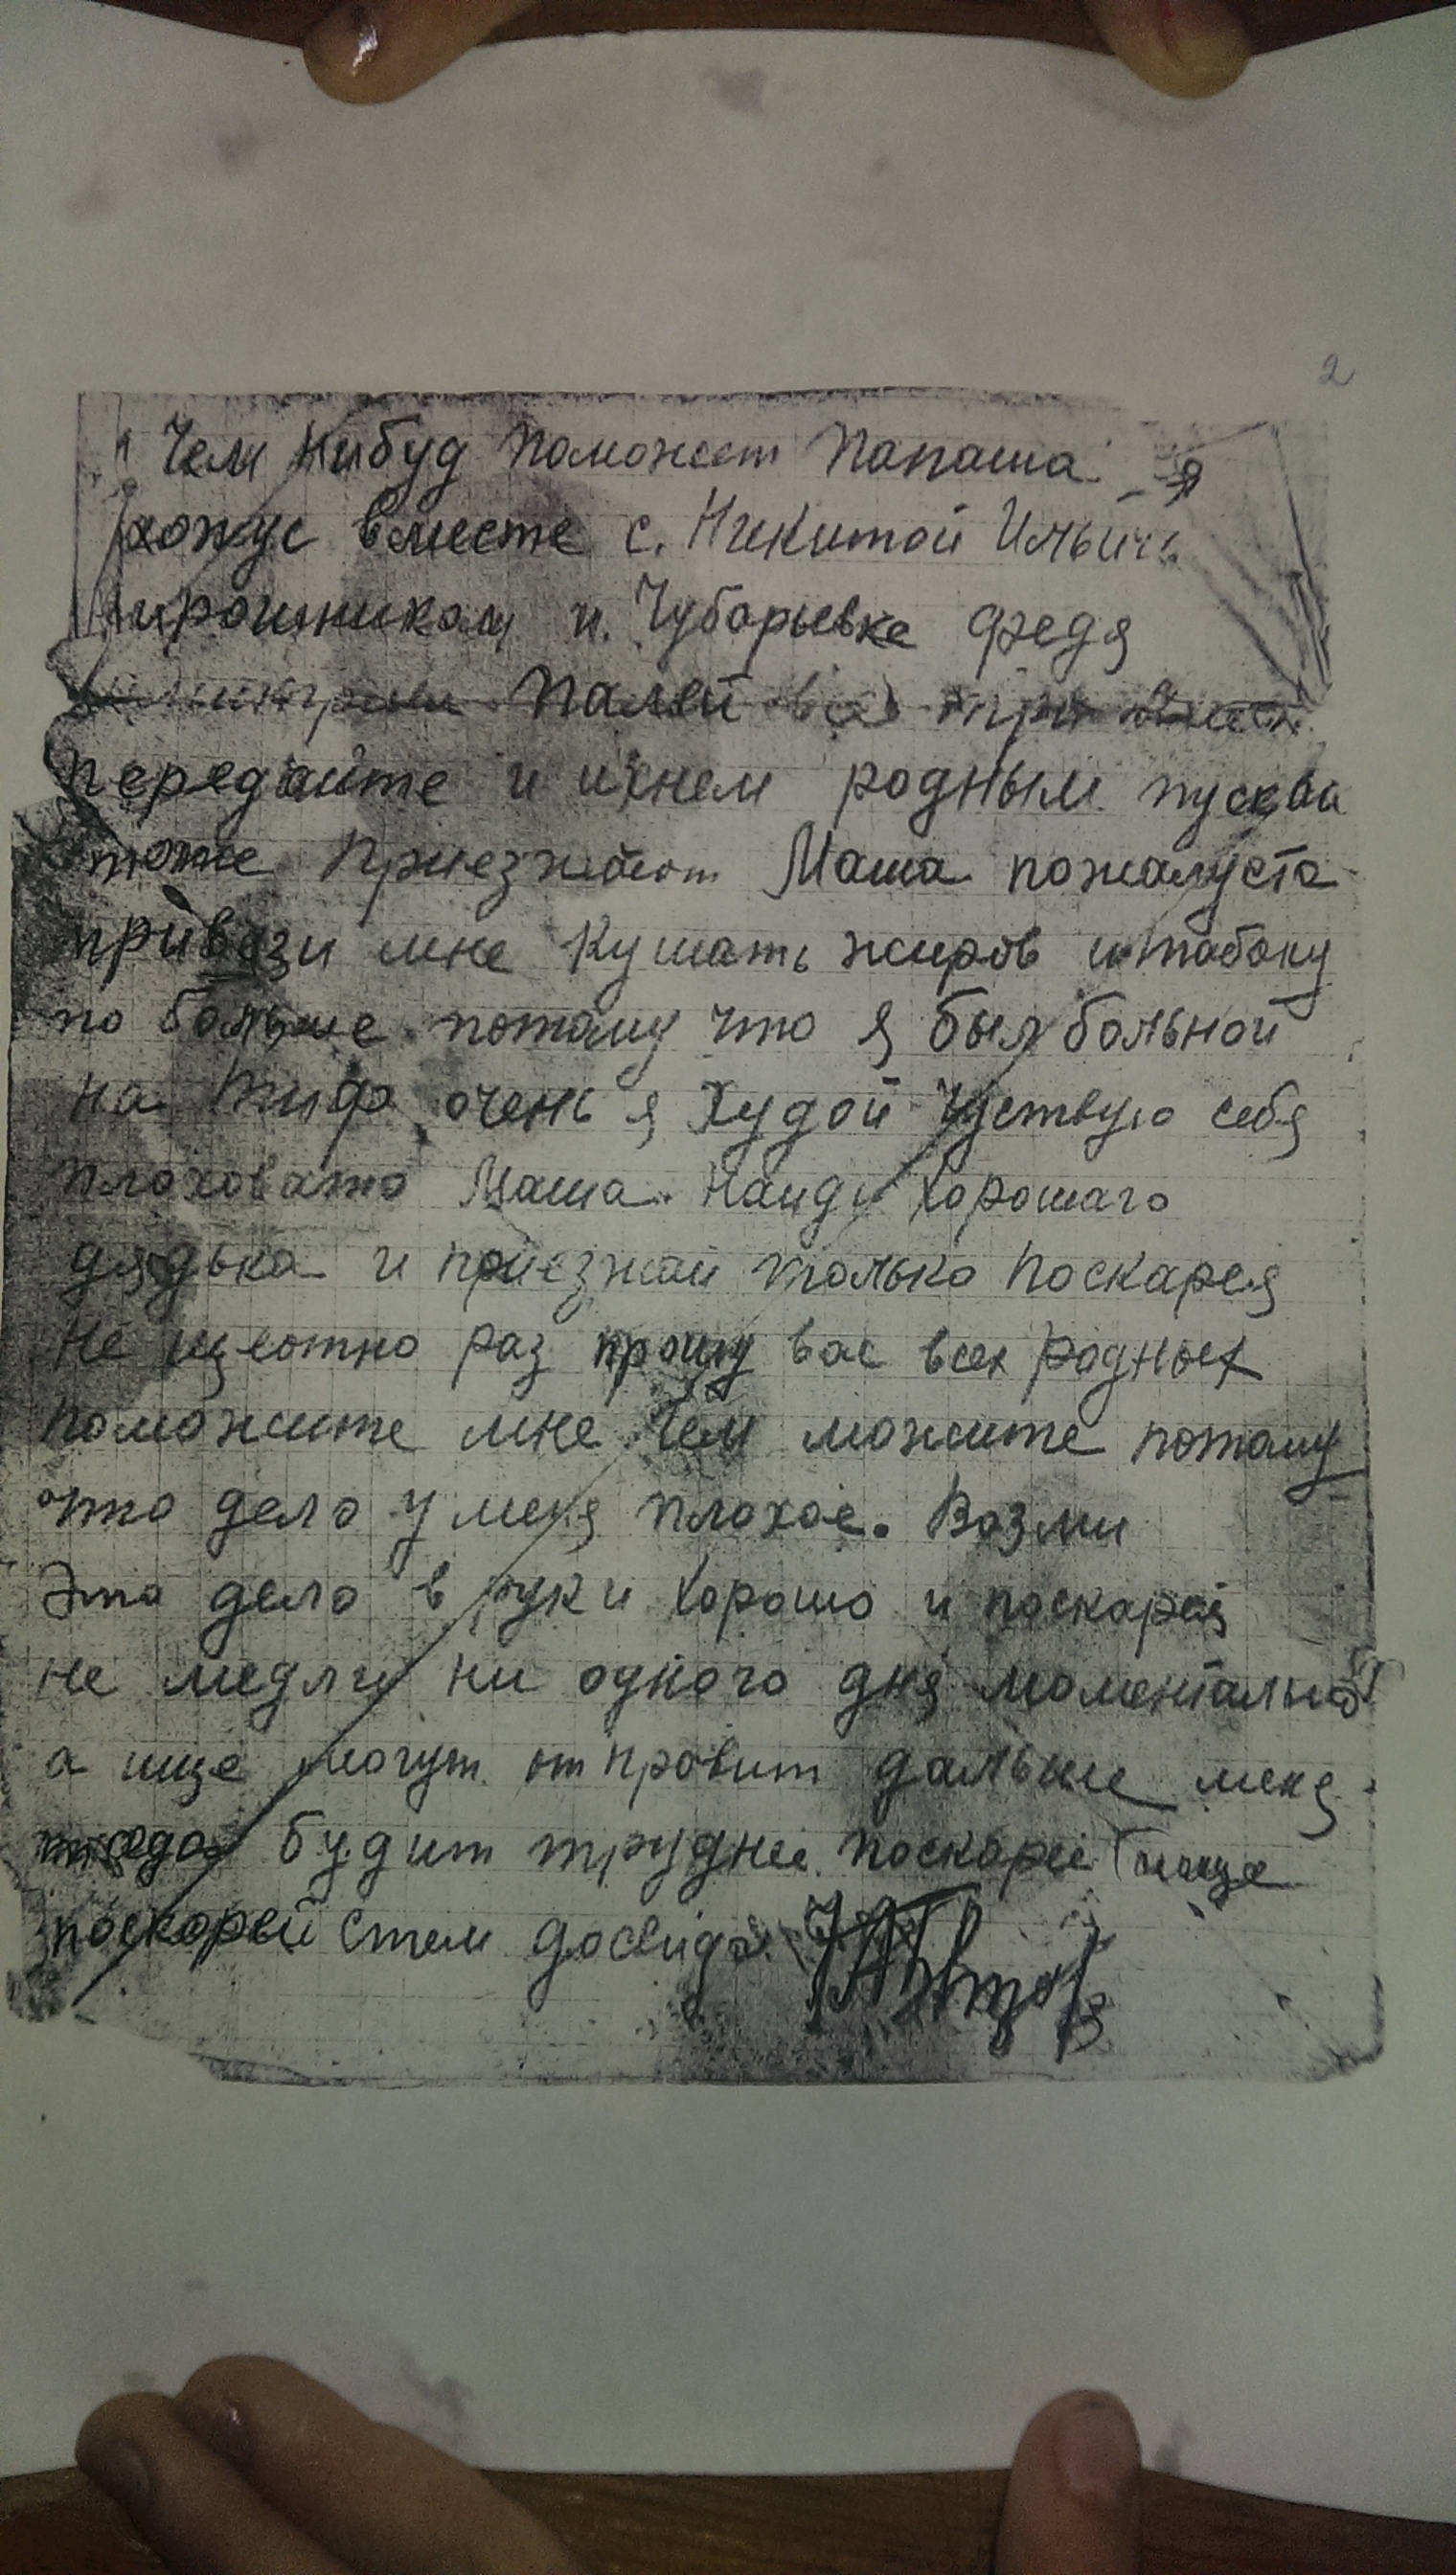 2
Чем нибуд поможет Папаша. я
хожус вместе с. Никитой Ильич
Мирошником и. Чубарьевке Федя
Палей все три
передайте и ихнем родным пускай
тоже приезжают Маша пожалуста
привези мне Кушать жиров и табаку
по больше потому что я был больной
на Тиф очень я Худой Чуствую себя
плоховато Маша. Найди Хорошаго
дядька и приезжай только поскарея
Не раз прошу вас всех родных
поможите мне Чем можите потому
что дело у меня плохое. Возми
Это дело в руки Хорошо и поскарея
не медли ни одного дня моментально
а ище могут отправит дальше меня
тогда будит труднее поскарее
поскорей Стем досвида